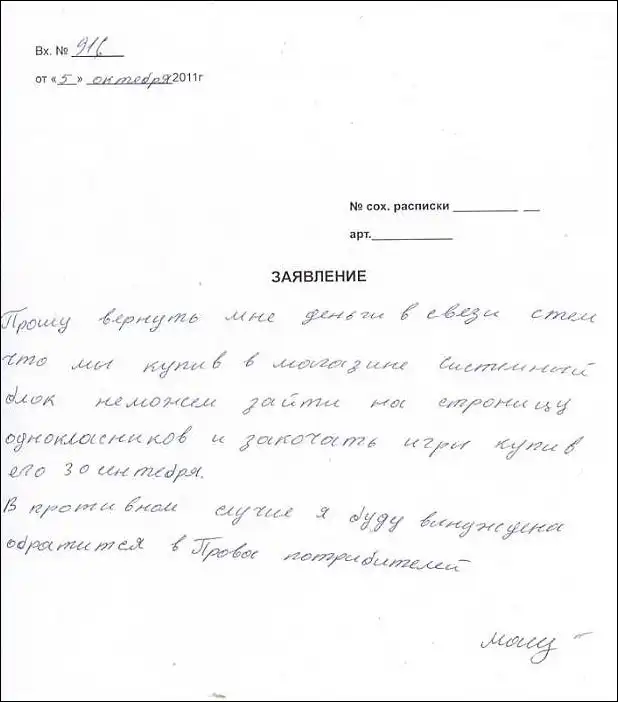 Вх. № 916
от «5» октября 2011г
№ сох. расписки
арт.
ЗАЯВЛЕНИЕ
Прошу вернуть мне деньги в свези стем
что мы купив в магазине системный
блок неможем зайти на строницу
однокласников и закочать игры купив
его 30 сентября.
В противном случие я буду вынуждена
обратится в Права потрибителей